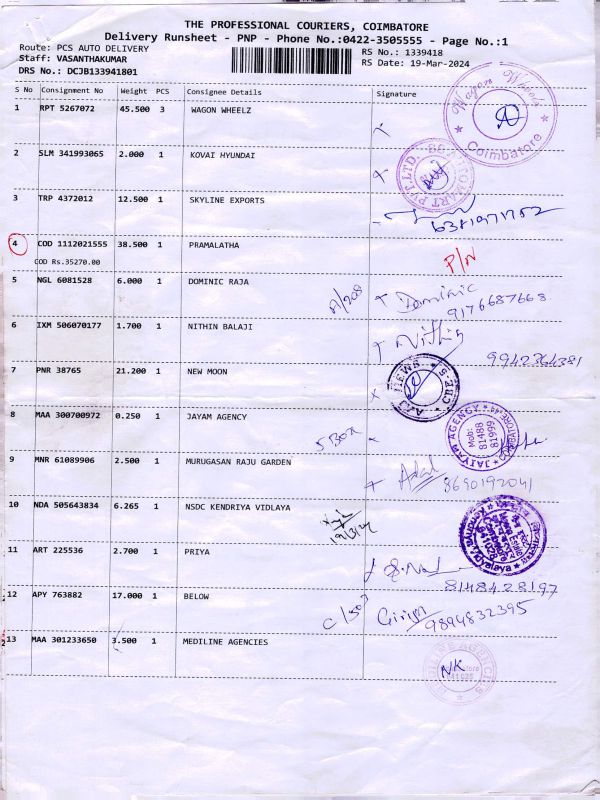 THE PROFESSIONAL COURIERS, COIMBATORE
Delivery Runsheet - PNP - Phone No.:0422-3505555 - Page No.:1
Route: PCS AUTO DELIVERY
RS No.: 1339418
Staff: VASANTHAKUMAR
RS Date: 19-Mar-2024
DRS No.: DCJB133941801
S No Consignment No Weight PCS Consignee Details Signature
1 RPT 5267072 45.500 3 WAGON WHEELZ
Wagon Wheelz
Coimbatore
2 SLM 341993065 2.000 1 KOVAI HYUNDAI
3 TRP 4372012 12.500 1 SKYLINE EXPORTS
6381971752
4 COD 1112021555 38.500 1 PRAMALATHA
COD Rs.35270.00
P/N
5 NGL 6081528 6.000 1 DOMINIC RAJA
A/208 Dominic
9176687668
6 IXM 506070177 1.700 1 NITHIN BALAJI
Nithin
9942364381
7 PNR 38765 21.200 1 NEW MOON
8 MAA 300700972 0.250 1 JAYAM AGENCY
5 BOX
JAIYAM AGENCY
Mob:
81488
81969
COIMBATORE-44
9 MNR 61089906 2.500 1 MURUGASAN RAJU GARDEN
8690192041
10 NDA 505643834 6.265 1 NSDC KENDRIYA VIDLAYA
19/3/24
11 ART 225536 2.700 1 PRIYA
8148428197
12 APY 763882 17.000 1 BELOW
Girija
9894832395
13 MAA 301233650 3.500 1 MEDILINE AGENCIES
NK